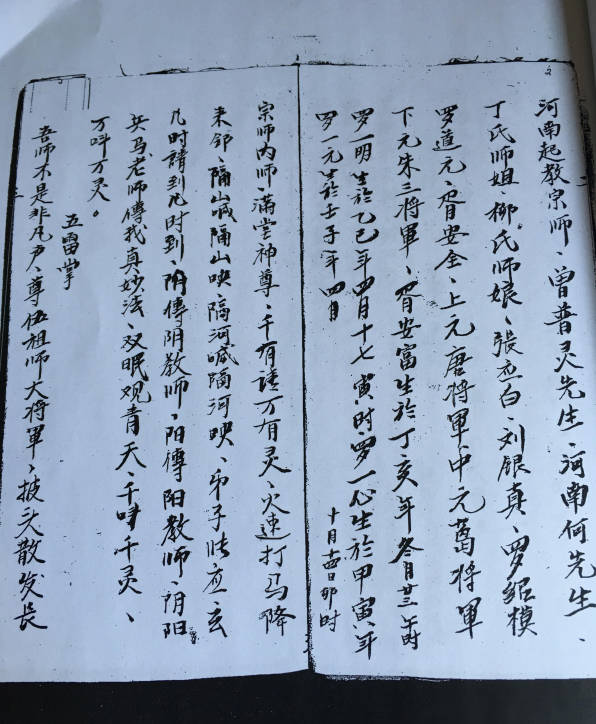 河南起教宗师、曾普灵先生、河南何先生、
丁氏师姐、柳氏师娘、張应白、刘银真、罗紹模
罗道元、胥安全、上元唐将軍中元葛将軍
下元朱三将軍、胥安富生於丁亥年冬月廿三午时
罗一明生於乙巳年四月十七寅时、罗一心生於甲寅年
十月 日卯时
罗一元生於壬子年四月
宗师内师、滿堂神尊、千有 万有灵、火速打马降
来邻、隔山喊隔山映、隔河喊隔河映、弟子 应玄
凡时請到凡时到、阴傳阴教师、阳傳阳教师、阴阳
兵马老师傳我真妙法、双眼观青天、千叫千灵、
万叫万灵。
五雷掌
吾师不是非凡声、尊伍祖师大将軍、披头散发長